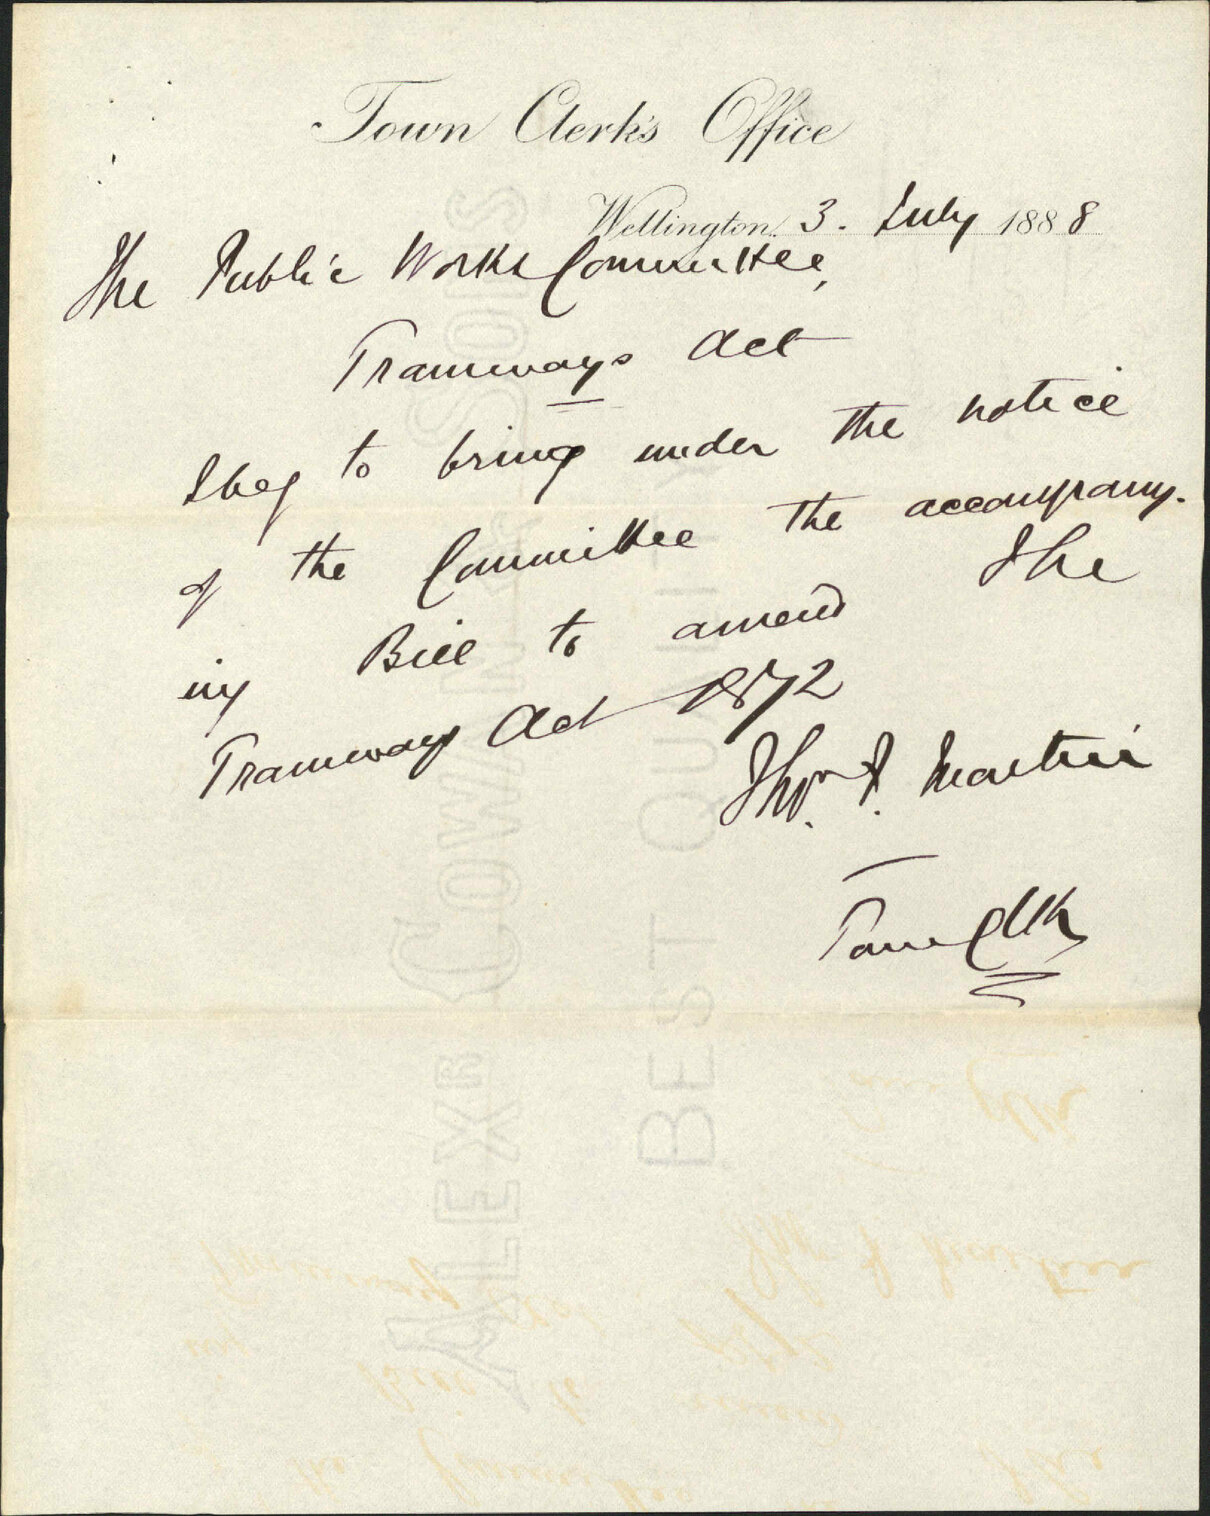 Town Clerk's Office
Wellington, 3. July 1888
The Public Works Committee,
Tramways Act
I beg to bring under the notice
of the Committee the accompany-
ing Bill to amend The
Tramways Act 1872
Thos. F. Martin
Town Clk
ALEXR COWAN & SONS
BEST QUALITY